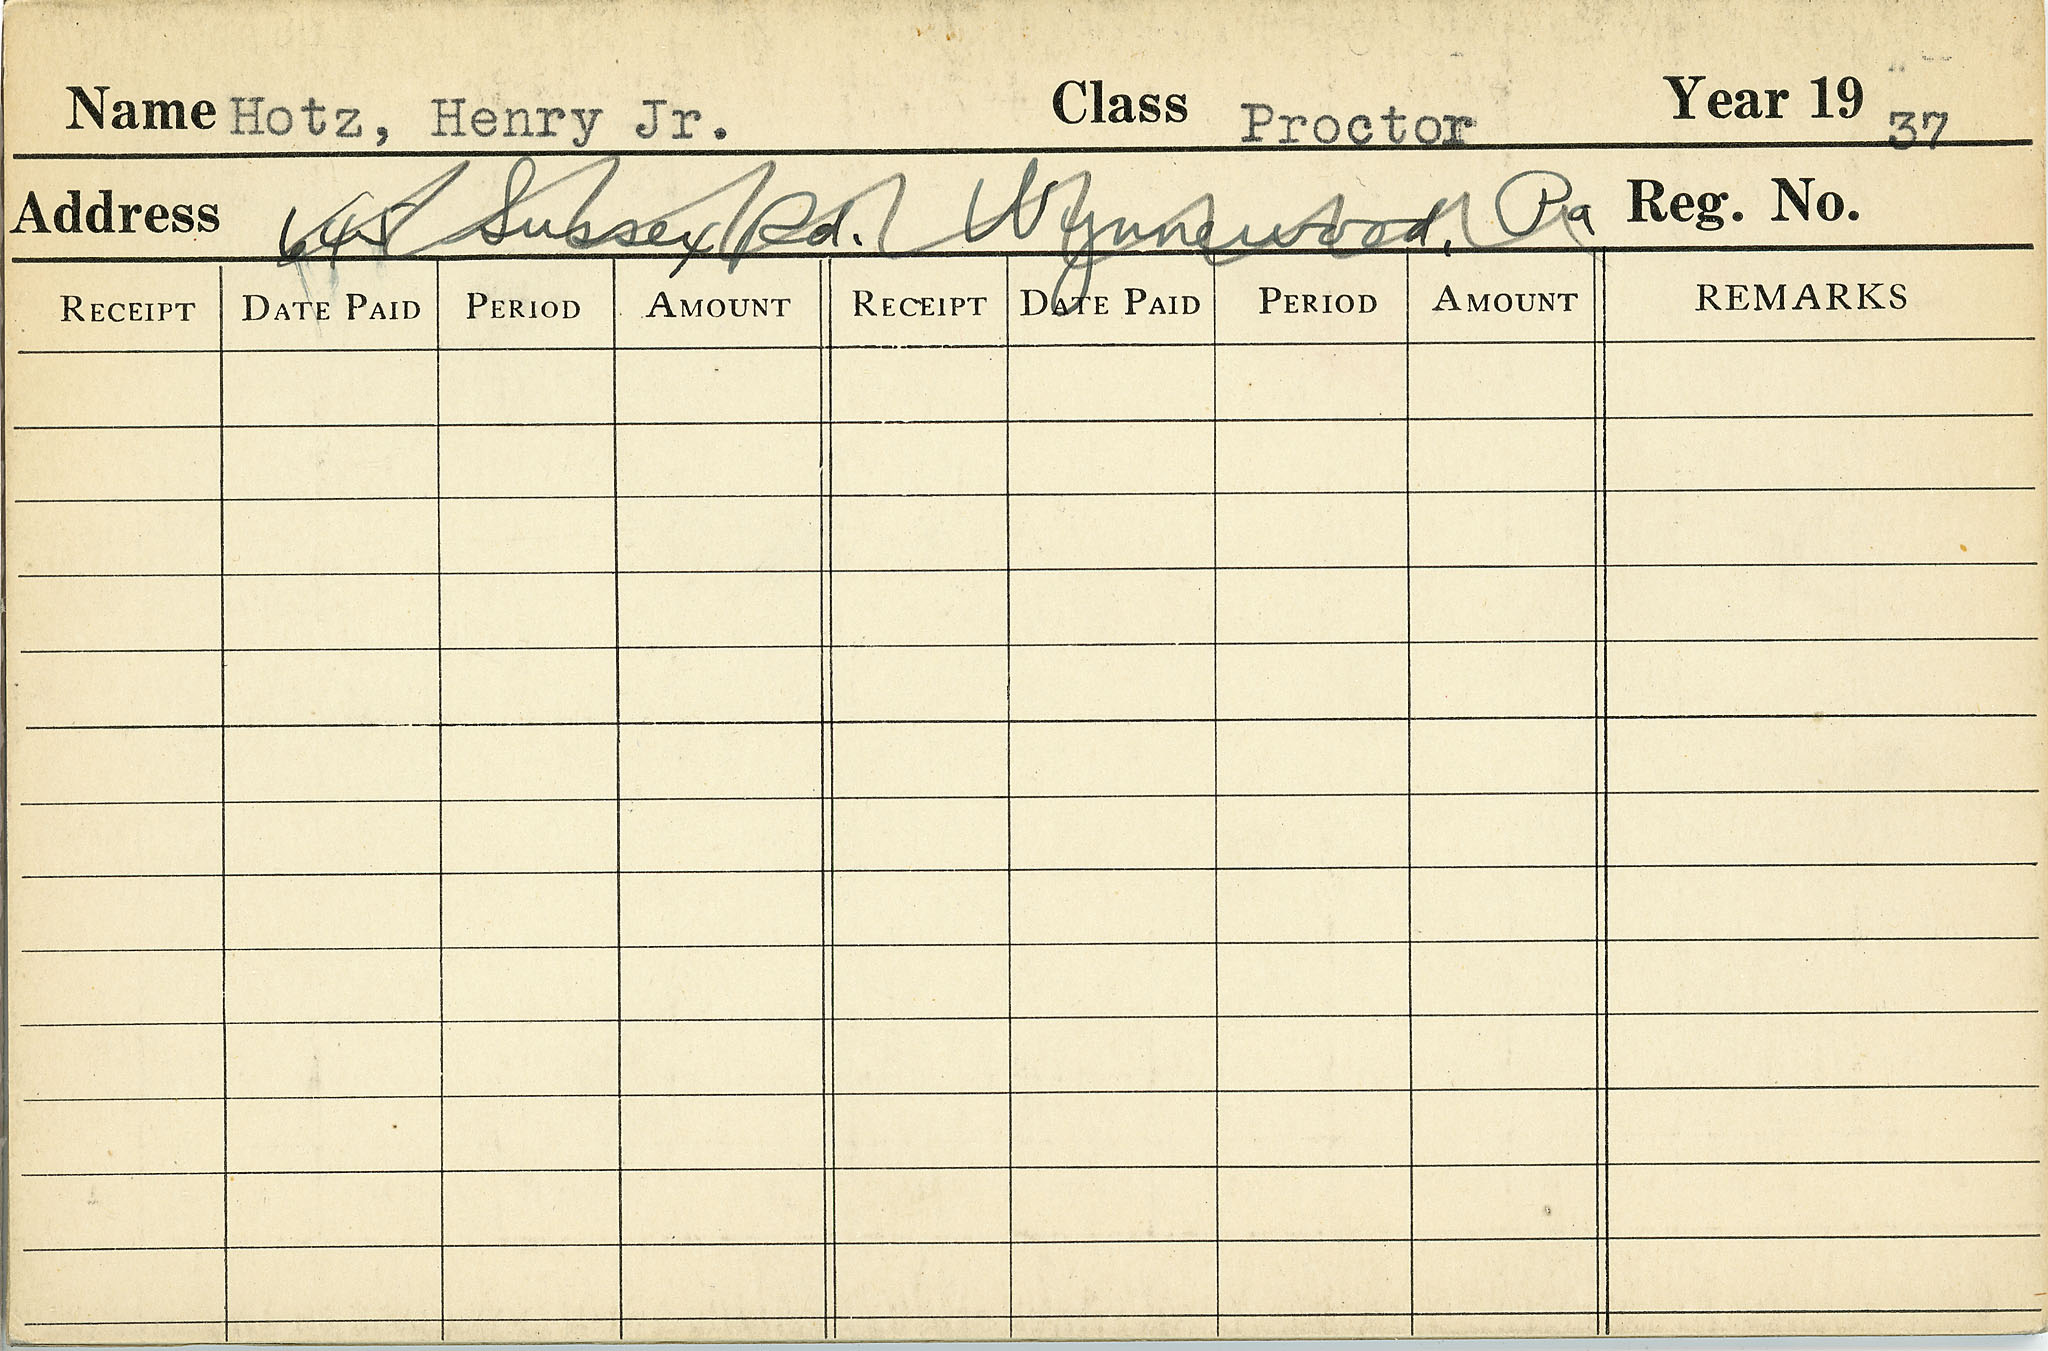 Name Hotz, Henry Jr. Class Proctor Year 19 37
Address 645 Sussex Rd. Wynnewood, Pa Reg. No.
RECEIPT DATE PAID PERIOD AMOUNT RECEIPT DATE PAID PERIOD AMOUNT REMARKS